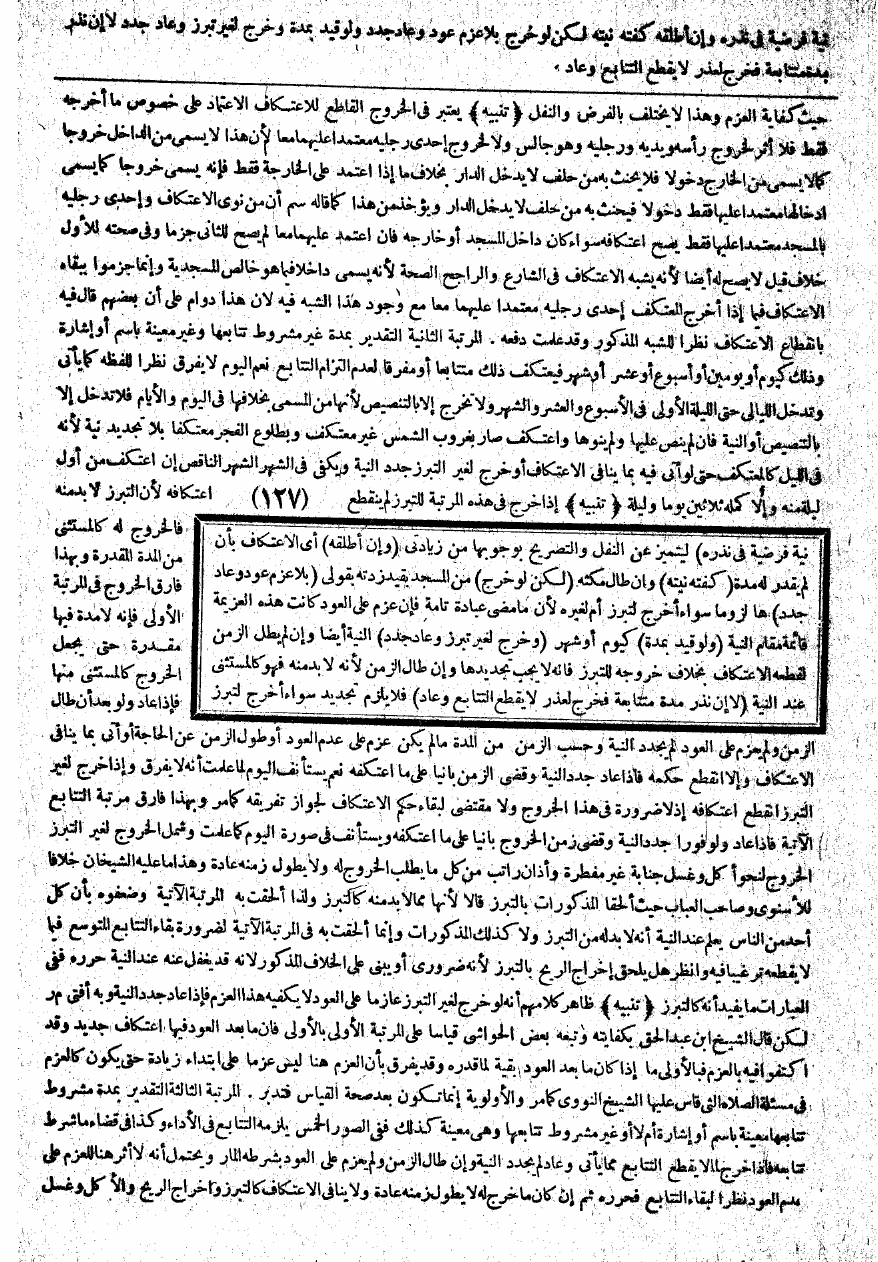 نية فرضية في نذره وإن أطلقه كفته نيته لكن لو خرج بلا عزم عود وعاد جدد ولو قيد بمدة وخرج لغير تبرز وعاد جدد لا إن نذر
مدة متتابعة فخرج لعذر لا يقطع التتابع وعاد .
حيث كفاية العزم وهذا لا يختلف بالفرض والنفل ﴿ تنبيه ﴾ يعتبر في الخروج القاطع للاعتكاف الاعتماد على خصوص ما أخرجه
فقط فلا أثر لخروج رأسه ويديه ورجليه وهو جالس ولا لخروج إحدى رجليه معتمدا عليهما معا لأن هذا لا يسمى من الداخل خروجا
كما لا يسمى من الخارج دخولا فلا يحنث به من حلف لا يدخل الدار بخلاف ما إذا اعتمد على الخارجة فقط فإنه يسمى خروجا كما يسمى
ادخالها معتمدا عليها فقط دخولا فيحنث به من حلف لا يدخل الدار ويؤخذ من هذا كما قاله سم أن من نوى الاعتكاف وإحدى رجليه
بالمسجد معتمدا عليها فقط يصح اعتكافه سواء كان داخل المسجد أو خارجه فان اعتمد عليهما معا لم يصح للثاني جزما وفي صحته للأول
خلاف قيل لا يصح له أيضا لأنه يشبه الاعتكاف في الشارع والراجح الصحة لأنه يسمى داخلا فيما هو خالص المسجدية وإنما جزموا ببقاء
الاعتكاف فيما إذا أخرج المعتكف إحدى رجليه معتمدا عليهما معا مع وجود هذا الشبه فيه لان هذا دوام على أن بعضهم قال فيه
بانقطاع الاعتكاف نظرا للشبه المذكور وقد علمت دفعه . المرتبة الثانية التقدير بمدة غير مشروط تتابعها وغير معينة باسم أو إشارة
وذلك كيوم أو يومين أو أسبوع أو عشر أو شهر فيعتكف ذلك متتابعا أو مفرقا لعدم التزام التتابع نعم اليوم لا يفرق نظرا للفظه كما يأتي
وتدخل الليالي حتى الليلة الأولى في الأسبوع والعشر والشهر ولا تخرج إلا بالتنصيص لأنها من المسمى بخلافها في اليوم والأيام فلا تدخل إلا
بالتنصيص أو النية فان لم ينص عليها ولم ينوها واعتكف صار بغروب الشمس غير معتكف وبطلوع الفجر معتكفا بلا تجديد نية لأنه
في الليل كالمعتكف حتى لو أتى فيه بما ينافي الاعتكاف أو خرج لغير التبرز جدد النية ويكفي في الشهر الشهر الناقص إن اعتكف من أول
ليلة منه وإلا كمله ثلاثين يوما وليلة ﴿ تنبيه ﴾ إذا خرج في هذه المرتبة للتبرز لم ينقطع (١٢٧) اعتكافه لأن التبرز لا بد منه
فالخروج له كالمستثنى
من المدة المقدرة وبهذا
فارق الخروج في المرتبة
الأولى فإنه لا مدة فيها
مقدرة حتى يجعل
الخروج كالمستثنى منها
فإذا عاد ولو بعد أن طال
نية فرضية في نذره) ليتميز عن النفل والتصريح بوجوبها من زيادتي (وإن أطلقه) أي الاعتكاف بأن
لم يقدر له مدة ( كفته نيته) وإن طال مكثه (لكن لو خرج) من المسجد بقيد زدته بقولي (بلا عزم عود وعاد
جدد) ها لزوما سواء أخرج لتبرز أم لغيره لأن ما مضى عبادة تامة فإن عزم على العود كانت هذه العزيمة
قائمة مقام النية (ولو قيد بمدة) كيوم أو شهر (وخرج لغير تبرز وعاد جدد) النية أيضا وإن لم يطل الزمن
لقطعه الاعتكاف بخلاف خروجه للتبرز فانه لا يجب تجديدها وإن طال الزمن لأنه لا بد منه فهو كالمستثنى
عند النية (لا إن نذر مدة متتابعة فخرج لعذر لا يقطع التتابع وعاد) فلا يلزم تجديد سواء أخرج لتبرز
الزمن ولم يعزم على العود لم يجدد النية وحسب الزمن من المدة مالم يكن عزم على عدم العود أو طول الزمن عن الحاجة أو أتى بما ينافي
الاعتكاف وإلا انقطع حكمه فاذا عاد جدد النية وقضى الزمن بانيا على ما اعتكفه نعم يستأنف اليوم لما علمت أنه لا يفرق وإذا خرج لغير
التبرز انقطع اعتكافه إذ لا ضرورة في هذا الخروج ولا مقتضى لبقاء حكم الاعتكاف لجواز تفريقه كما مر وبهذا فارق مرتبة التتابع
الآتية فاذا عاد ولو فورا جدد النية وقضى زمن الخروج بانيا على ما اعتكفه ويستأنف في صورة اليوم كما علمت وشمل الخروج لغير التبرز
الخروج لنحو أكل وغسل جنابة غير مفطرة وأذان راتب من كل ما يطلب الخروج له ولا يطول زمنه عادة وهذا ما عليه الشيخان خلافا
للأسنوي وصاحب العباب حيث ألحقا المذكورات بالتبرز قالا لأنها مما لا بد منه كالتبرز ولذا ألحقت به المرتبة الآتية وضعفوه بأن كل
أحد من الناس يعلم عند النية أنه لا بد له من التبرز ولا كذلك المذكورات وإنما ألحقت به في المرتبة الآتية لضرورة بقاء التتابع للتوسع فيما
لا يقطعه ترغيبا فيه وانظر هل يلحق إخراج الريح بالتبرز لأنه ضروري أو يبنى على الخلاف المذكور لانه قد يغفل عنه عند النية حرره ففي
العبارات ما يفيد أنه كالتبرز ﴿ تنبيه ﴾ ظاهر كلامهم أنه لو خرج لغير التبرز عازما على العود لا يكفيه هذا العزم فإذا عاد جدد النية وبه أفتى م ر
لكن قال الشيخ ابن عبد الحق بكفايته وتبعه بعض الحواشي قياسا على المرتبة الأولى بالأولى فان ما بعد العود فيها اعتكاف جديد وقد
اكتفوا فيه بالعزم فبالأولى ما إذا كان ما بعد العود بقية لما قدره وقد يفرق بأن العزم هنا ليس عزما على ابتداء زيادة حتى يكون كالعزم
في مسئلة الصلاة التي قاس عليها الشيخ النووي كما مر والأولوية إنما تكون بعد صحة القياس فتدبر . المرتبة الثالثة التقدير بمدة مشروط
تتابعها معينة باسم أو إشارة أم لا أو غير مشروط تتابعها وهي معينة كذلك ففي الصور الخمس يلزمه التتابع في الأداء وكذا في قضاء ما شرط
تتابعه فاذا خرج لما لا يقطع التتابع مما يأتي وعاد لم يجدد النية وإن طال الزمن ولم يعزم على العود بشرطه المار ويحتمل أنه لا أثر هنا للعزم على
عدم العود نظرا لبقاء التتابع فحرره ثم إن كان ما خرج له لا يطول زمنه عادة ولا ينافي الاعتكاف كالتبرز واخراج الريح والأكل وغسل